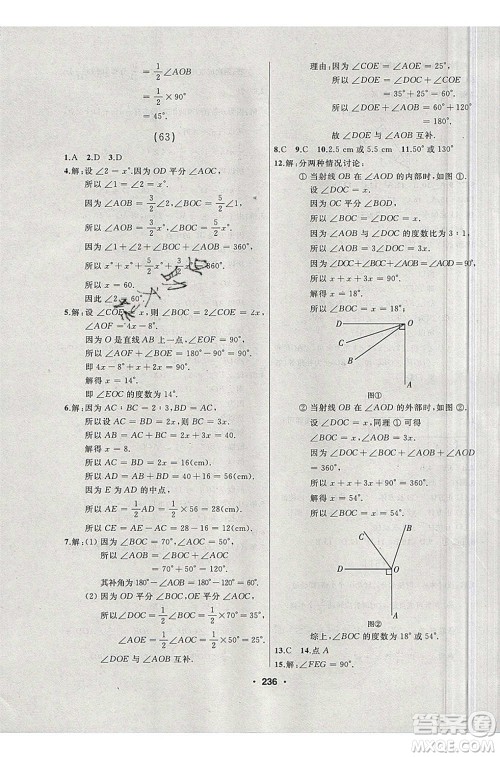 =1/2∠AOB
=1/2×90°
=45°.
(63)
1.A 2.D 3.D
4.解:设∠2=x°.因为OD平分∠AOC,
所以∠1=x°.
因为∠AOB=3/2∠2,
所以∠AOB=3/2x°.
因为∠1+∠2+∠BOC+∠AOB=360°,
所以x=60.
因此∠2=60°.
5.解:设∠COE=x°,则
∠AOF=4x-8°.
因为O是直线AB上一点,∠EOF=90°,
所以∠AOF+∠BOE=180°-90°=90°.
即4x-8°+x=90°.
解得x=
即∠AOF的度数为
6.解:因为AC∶BD=2∶3,
所以设AC=2x,则BD=3x.
所以AB=AC+BC=
解得x=8.
所以AC=BD=2x=16(cm).
所以AB=AC+BD+
因为E为AB的中点,
所以AE=1/2AB=1/2×56=28(cm).
所以CE=AE-AC=28-16=12(cm).
7.解:(1)因为∠BOC=
所以∠AOB=∠BOC+∠AOC
=70°+50°=120°.
其补角为180°-∠AOB=180°-120°=60°.
(2)因为OD平分∠BOC,OE平分∠AOC,
所以∠DOC=1/2∠BOC=1/2×70°=35°,
∠AOE=1/2∠AOC=1/2×50°=25°.
所以∠DOE与∠AOB互补.
理由:因为∠COE=∠AOE=25°,
所以∠DOE=∠DOC+∠COE
=35°+25°=60°.
所以∠DOE+∠AOB=60°+120°=180°.
故∠DOE与∠AOB互补.
8.C 9.C 10.2.5 cm或5.5 cm 11.50°或130°
12.解:分两种情况讨论:
①当射线OB在∠AOD的内部时,如图①.
设∠BOC=x,
因为OC平分∠BOD,
所以∠COD=∠BOC=x.
因为∠AOB与∠BOC的度数比为3∶1,
所以∠AOB=3x.
所以x+x+3x=90°.
解得x=18°.
所以∠BOC=18°.
D
C
B
O
A
图①
②当射线OB在∠AOD的外部时,如图②.
设∠BOC=x,同理①可得
∠COD=∠BOC=x,∠AOB=3x.
因为∠COD+∠BOC+∠AOB+∠AOD=360°,
所以x+x+3x+90°=360°.
解得x=54°.
所以∠BOC=54°.
C
B
D
O
A
图②
综上,∠BOC的度数为18°或54°.
13.C 14.点A
15.解:∠FEG=90°.
· 236 ·
答案圈
MXQE.COM